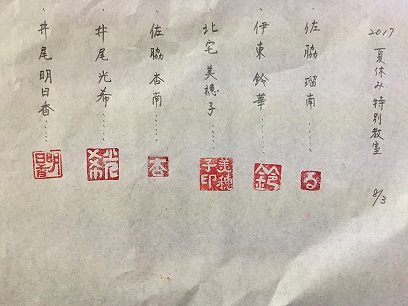 2017 夏休み特別教室 8/3
佐脇瑠南……
る
伊東鈴華……
鈴
北宅美穂子……
美穂子印
佐脇杏南……
杏
井尾光希……
光希
井尾明日香……
明日香